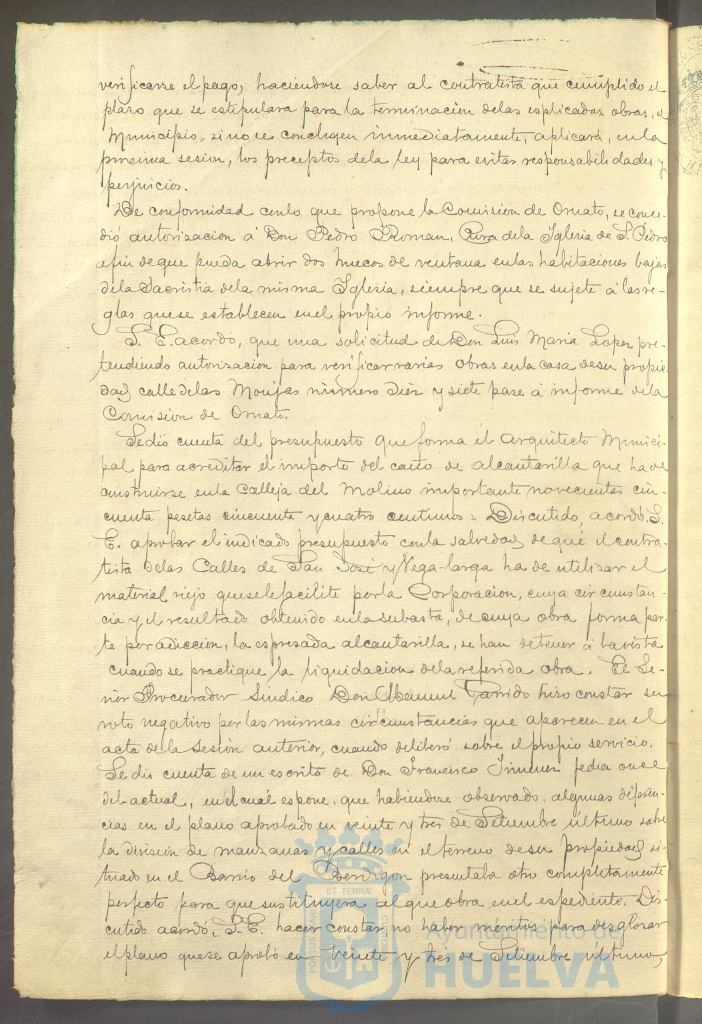 verificarse el pago, haciendose saber al contratista que cumplido el
plazo que se estipulara para la terminacion delas esplicadas obras, el
Municipio, sino se concluyen inmediatamente, aplicará, en la
proxima sesion, los preceptos dela ley para evitar responsabilidades y
perjuicios.
De conformidad conlo que propone la Comision de Ornato, se conce-
dió autorizacion á Don Pedro Roman, Cura dela Iglesia de S. Pedro
afin de que pueda abrir dos huecos de ventana enlas habitaciones bajas
dela Sacristia dela misma Iglesia, siempre que se sujete á las re-
glas quese establecen enel propio informe.
S. E. acordó, que una solicitud de Don Luis Maria Lopez pre-
tendiendo autorizacion para verificar varias obras enla casa desu propie-
dad calle delas Monjas número diez y siete pase á informe dela
Comision de Ornato.
Se dió cuenta del presupuesto que forma el Arquitecto Munici-
pal para acreditar el importe del caño de alcantarilla que ha de
construirse enla Calleja del Molino importante novecientas cin-
cuenta pesetas cincuenta y cuatro centimos = Discutido, acordó S.
E. aprobar el indicado presupuesto conla salvedad de que el contra-
tista delas Calles de San José y Vega-larga ha de utilizar el
material viejo quesele facilite por la Corporacion, cuya circunstan-
cia y el resultado obtenido enla subasta, de cuya obra forma par-
te por adiccion, la espresada alcantarilla, se han detener á la vista
cuando se practique la liquidacion dela referida obra. El Se-
ñor Procurador Síndico Don Manuel Garrido hizo constar su
voto negativo por las mismas circunstancias que aparecen en el
acta dela sesion anterior, cuando deliberó sobre el propio servicio.
Se dio cuenta de un escrito de Don Francisco Jimenez fecha once
del actual, enel cual espone, que habiendose observado algunas diferen-
cias en el plano aprobado en veinte y tres de Setiembre último sobre
la division de manzanas y calles en el terreno desu propiedad si-
tuado en el Barrio del presentaba otro completamente
perfecto para que sustituyera al que obra enel espediente. Dis-
cutido acordó, S. E. hacer constar, no haber méritos para desglosar
el plano quese aprobó en veinte y tres de Setiembre último,
PORTUS MARIS
ET TERRÆ
CUSTODIA
Ayuntamiento de
HUELVA